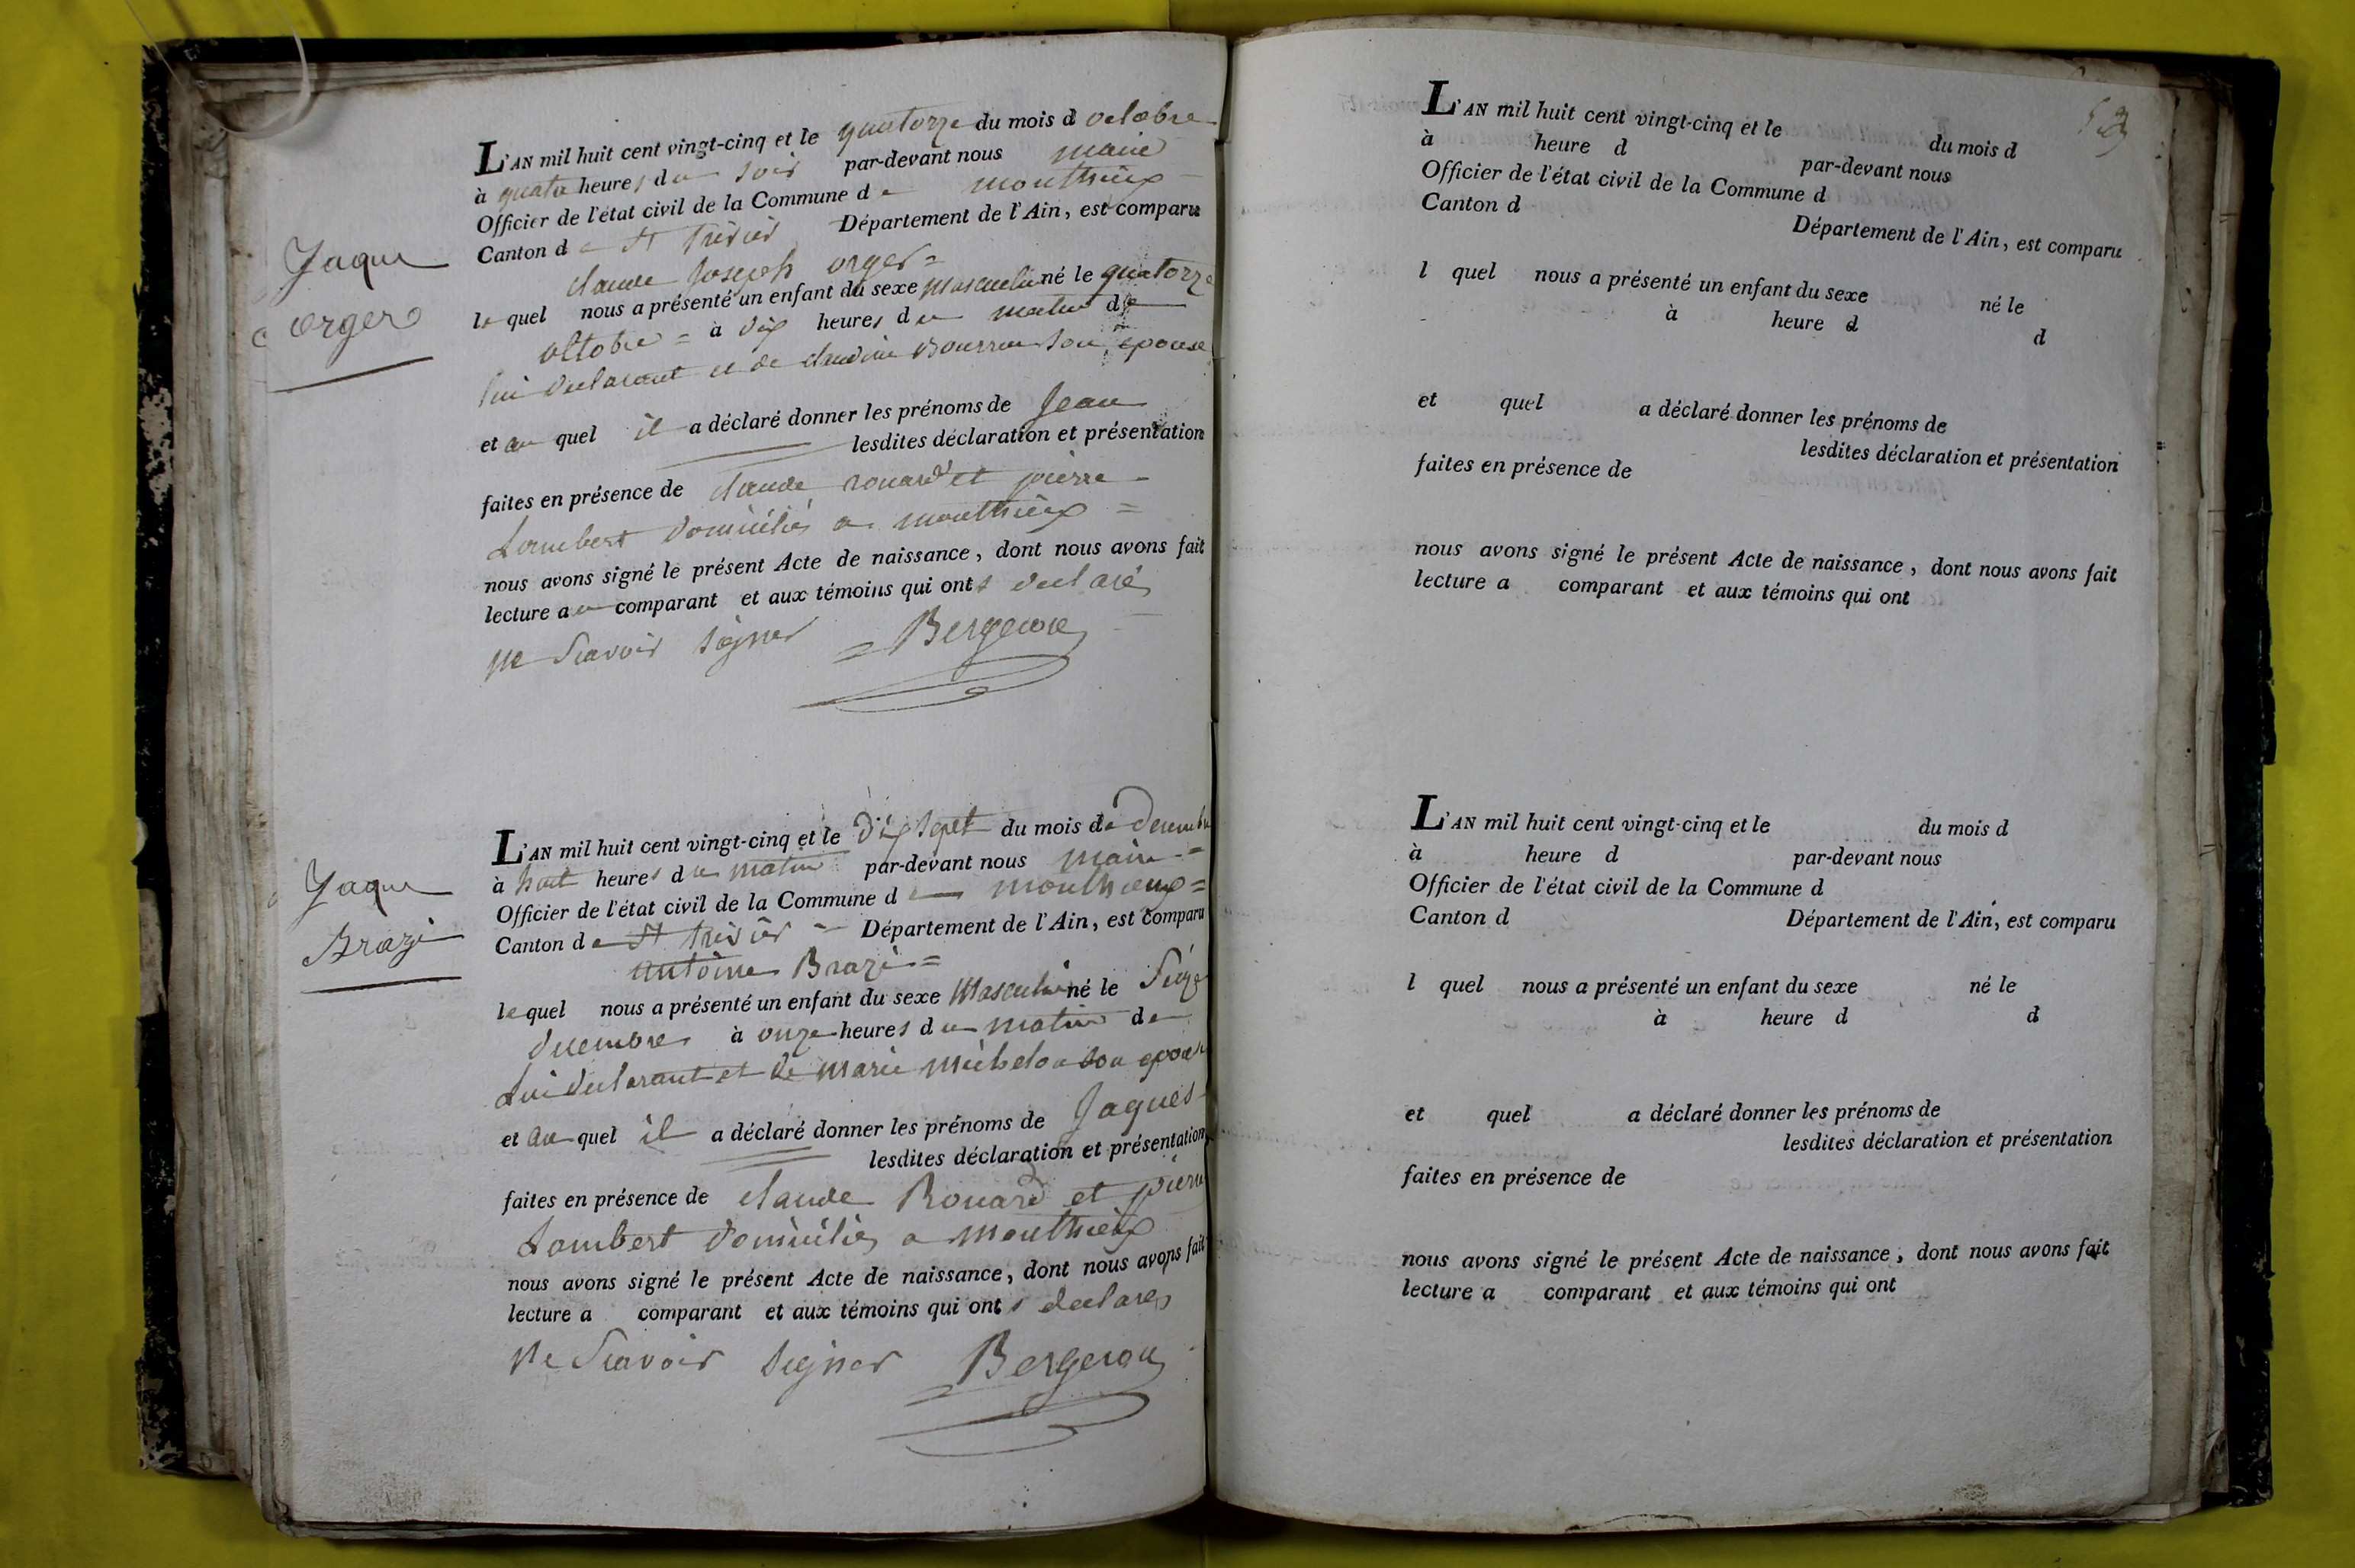 Jaque
orger
L'AN mil huit cent vingt-cinq et le quatorze du mois d octobre
à quatre heures du soir par-devant nous maire
Officier de l'état civil de la Commune de monthieux
Canton de St trivier Département de l'Ain, est comparu
claude Joseph orger =
lequel nous a présenté un enfant du sexe masculin né le quatorze
octobre = à dix heures du matin de
lui declarant et de claudine son epouse
et au quel il a déclaré donner les prénoms de Jean
lesdites déclaration et présentation
faites en présence de claude rouard et pierre
Lambert domiciliés a monthieux =
nous avons signé le présent Acte de naissance, dont nous avons fait
lecture au comparant et aux témoins qui onts declarés
ne scavoir signer = Bergeron
Jaque
Brazi
L'AN mil huit cent vingt-cinq et le dix sept du mois de decembre
à huit heures du matin par-devant nous maire =
Officier de l'état civil de la Commune de monthieux =
Canton de St trivier Département de l'Ain, est comparu
antoine Brazi =
lequel nous a présenté un enfant du sexe Masculin né le Seize
decembre à onze heures du matin de
Lui declarant et de marie michelon son epouse
et au quel il a déclaré donner les prénoms de Jaques
lesdites déclaration et présentation
faites en présence de claude Rouard et pierre
Lambert domiciliés a monthieux
nous avons signé le présent Acte de naissance, dont nous avons fait
lecture a comparant et aux témoins qui onts declarés
Ne Scavoir signer Bergeron
L'AN mil huit cent vingt-cinq et le du mois d
à heure d par-devant nous
Officier de l'état civil de la Commune d
Canton d Département de l'Ain, est comparu
l quel nous a présenté un enfant du sexe né le
à heure d d
et quel a déclaré donner les prénoms de
lesdites déclaration et présentation
faites en présence de
nous avons signé le présent Acte de naissance, dont nous avons fait
lecture a comparant et aux témoins qui ont
L'AN mil huit cent vingt-cinq et le du mois d
à heure d par-devant nous
Officier de l'état civil de la Commune d
Canton d Département de l'Ain, est comparu
l quel nous a présenté un enfant du sexe né le
à heure d d
et quel a déclaré donner les prénoms de
lesdites déclaration et présentation
faites en présence de
nous avons signé le présent Acte de naissance, dont nous avons fait
lecture a comparant et aux témoins qui ont